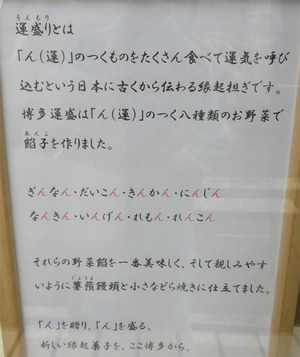 うんもり
運盛りとは
「ん(運)」のつくものをたくさん食べて運気を呼び
込むという日本に古くから伝わる縁起担ぎです。
博多運盛は「ん(運)」のつく八種類のお野菜で
あんこ
餡子を作りました。
ぎんなん・だいこん・きんかん・にんじん
なんきん・いんげん・れもん・れんこん
それらの野菜餡を一番美味しく、そして親しみやす
じょうよ
いように薯蕷饅頭と小さなどら焼きに仕立てました。
「ん」を贈り、「ん」を盛る。
新しい縁起菓子を、ここ博多から。